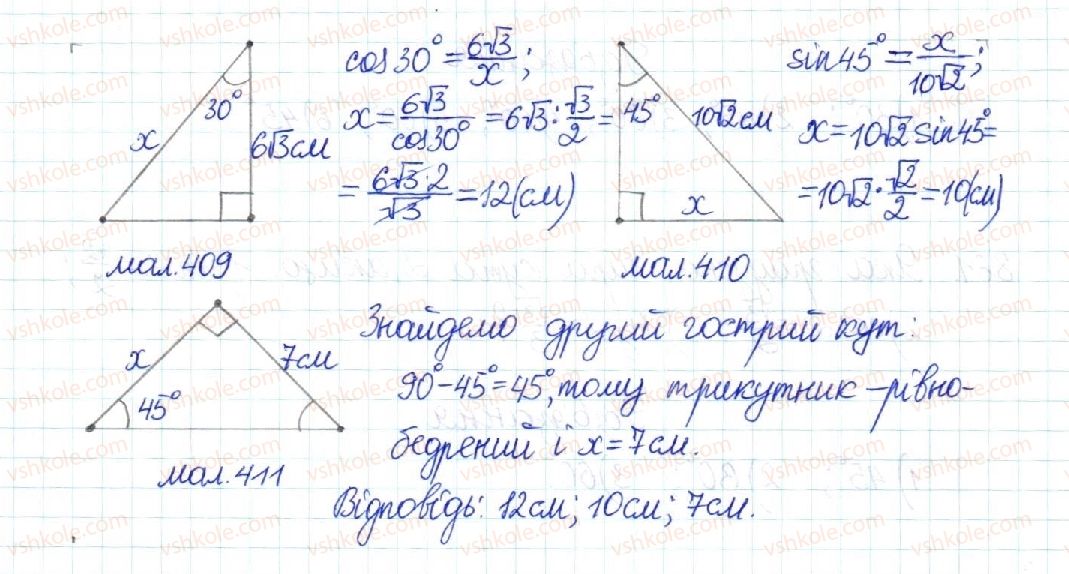 x
30°
6√3 см
cos30° = 6√3/x;
x = 6√3/cos30° = 6√3 : √3/2 =
= 6√3·2/√3 = 12(см)
мал.409
45°
10√2 см
x
sin45° = x/10√2;
x = 10√2 sin45° =
= 10√2 · √2/2 = 10(см)
мал.410
x
7см
45°
мал.411
Знайдемо другий гострий кут:
90° - 45° = 45°, тому трикутник – рівно-
бедрений і x = 7см.
Відповідь: 12см; 10см; 7см.
vshkole.com